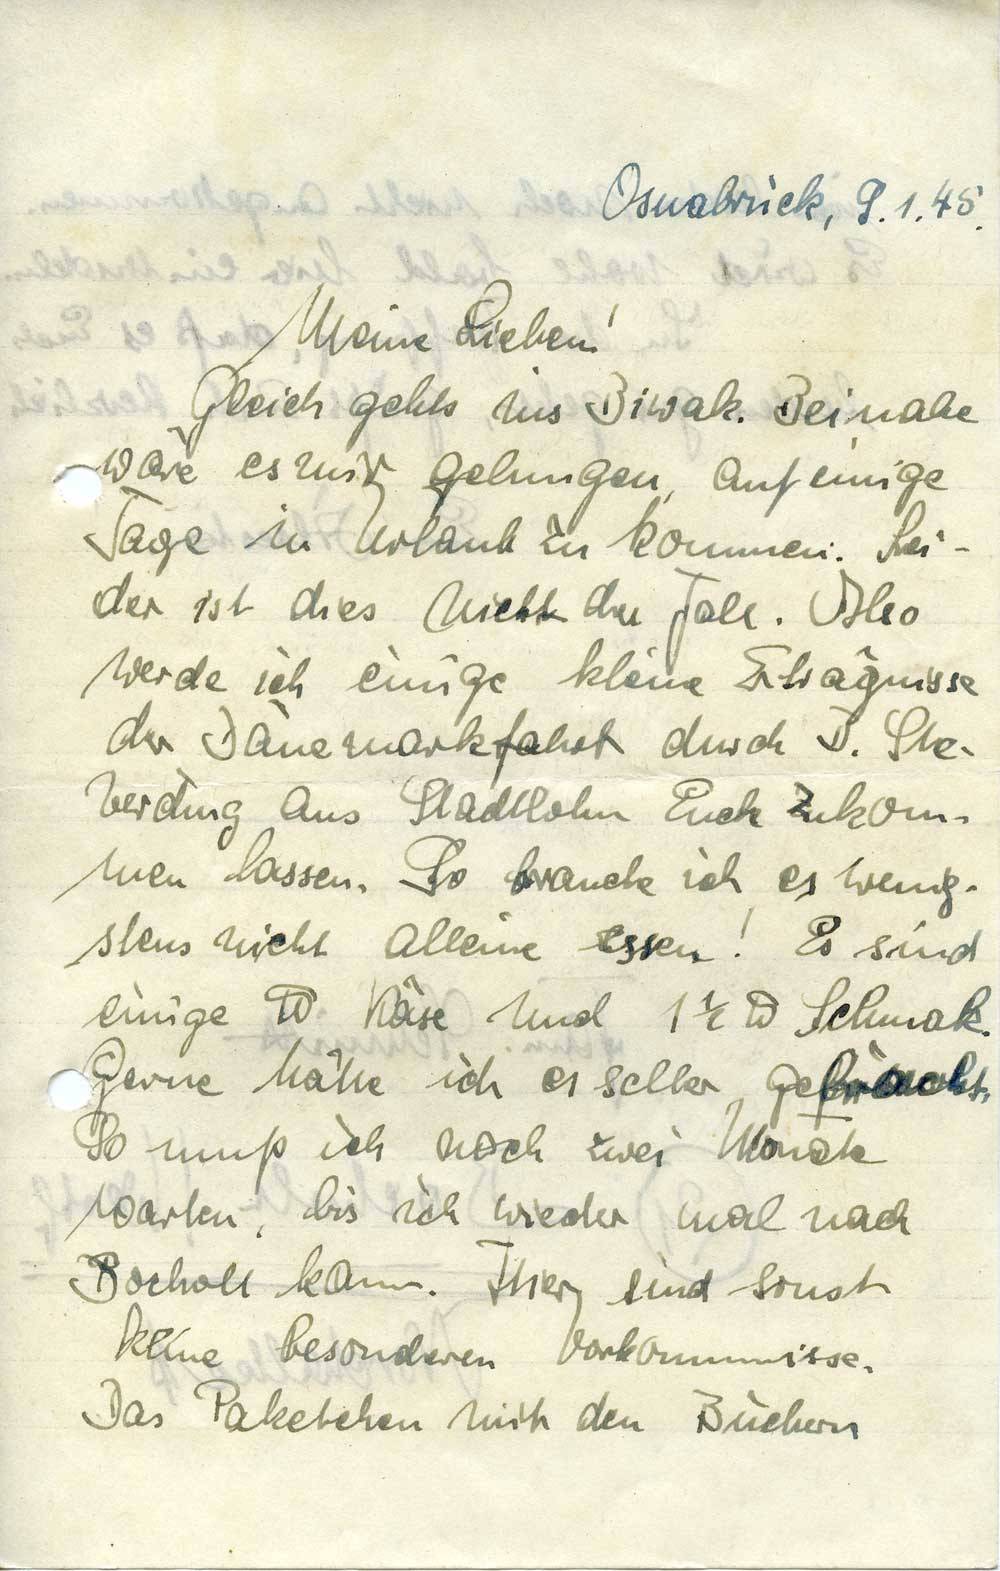 Osnabrück, 9.1.45.
Meine Lieben!
Gleich gehts ins Biwak. Beinahe
wäre es mir gelungen, auf einige
Tage in Urlaub zu kommen. Lei-
der ist dies nicht der Fall. Also
werde ich einige kleine Erträgnisse
der Dänemarkfahrt durch D. Ste-
verding aus Stadtlohn Euch zukom-
men lassen. So brauche ich es wenig-
stens nicht alleine essen! Es sind
einige ℔ Käse und 1 ½ ℔ Schmalz.
Gerne hätte ich es selber gebracht.
So muß ich noch zwei Monate
warten, bis ich wieder mal nach
Bocholt kann. Hier sind sonst
keine besonderen Vorkommnisse.
Das Paketchen mit den Büchern